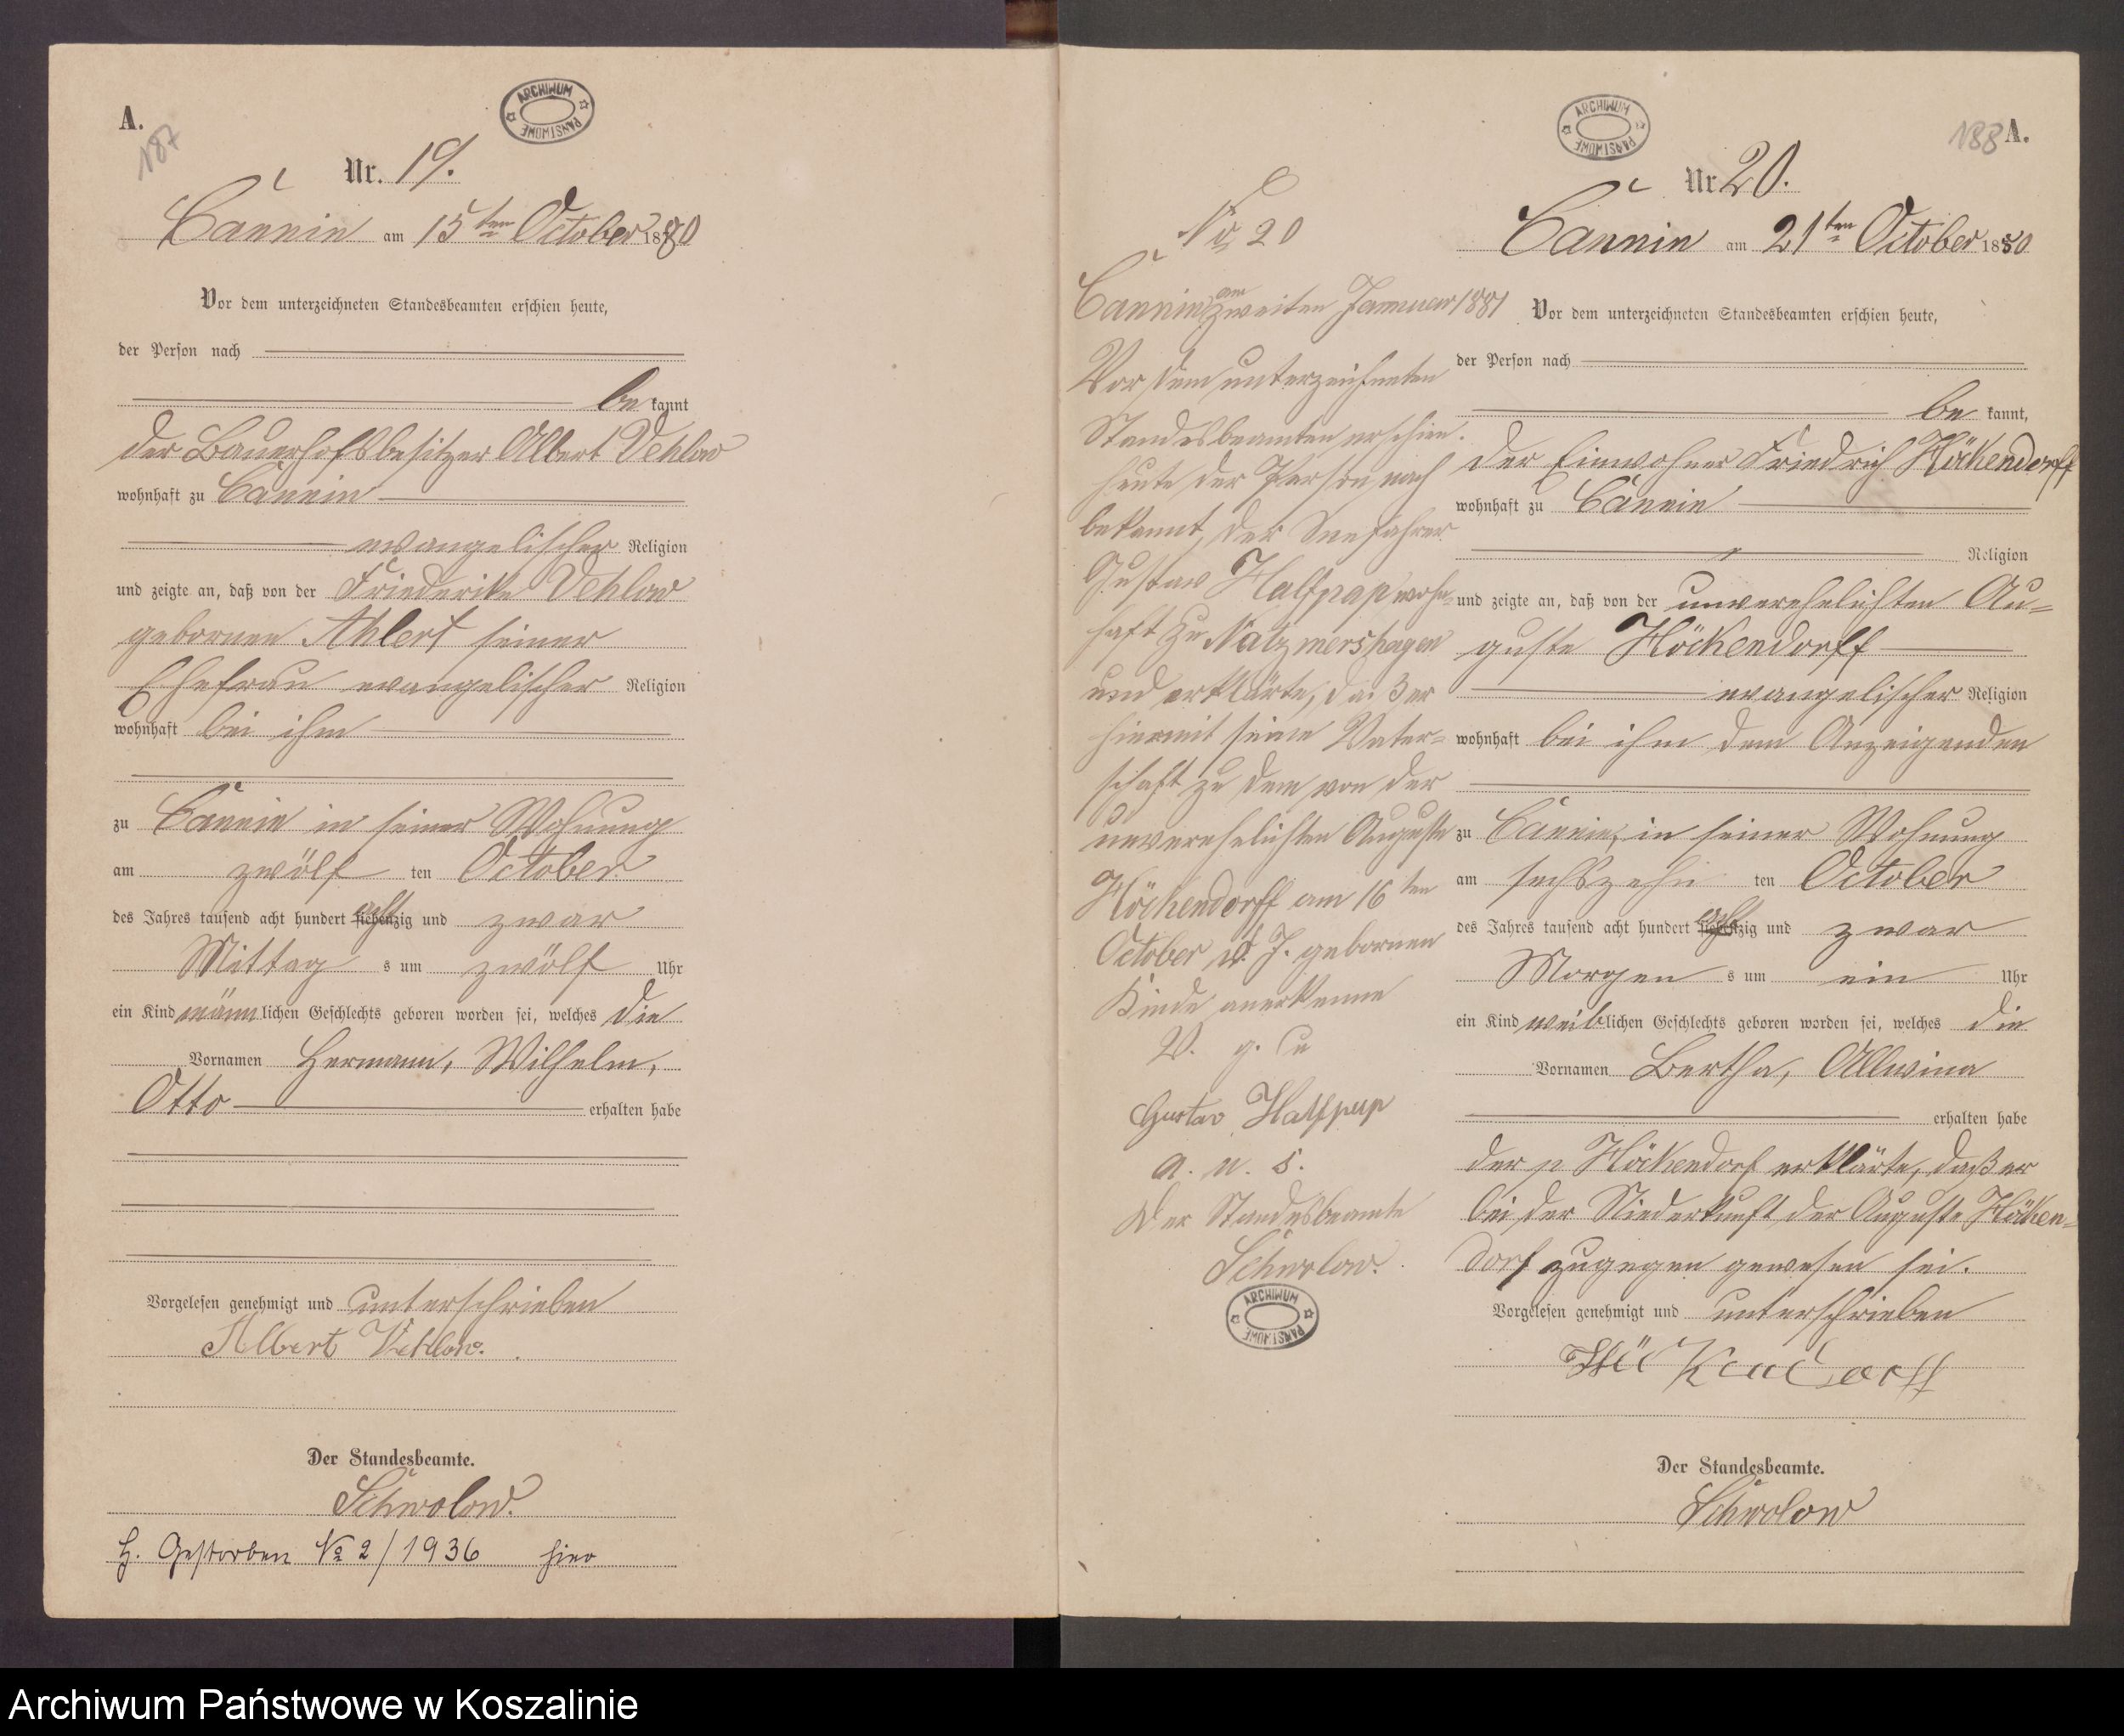 A.
187
ARCHIWUM PAŃSTWOWE
Nr. 19.
Cannin am 15ten October 1880
Vor dem unterzeichneten Standesbeamten erschien heute,
der Person nach
be kannt
der Bauerhofsbesitzer Albert Vehlow
wohnhaft zu Cannin
evangelischer Religion
und zeigte an, daß von der Friederike Vehlow
gebornen Ahlert seiner
Ehefrau evangelischer Religion
wohnhaft bei ihm
zu Cannin in seiner Wohnung
am zwölf ten October
des Jahres tausend acht hundert siebenzig acht und zwar
Mittag s um zwölf Uhr
ein Kind männlichen Geschlechts geboren worden sei, welches die
Vornamen Hermann, Wilhelm,
Otto erhalten habe
Vorgelesen genehmigt und unterschrieben
Albert Vehlow.
Der Standesbeamte.
Schwolow.
H. Gestorben No 2/1936 hier
ARCHIWUM PAŃSTWOWE
188 A.
Nr. 20.
Cannin am 21ten October 1880
Vor dem unterzeichneten Standesbeamten erschien heute,
der Person nach
be kannt,
der Einwohner Friedrich Höckendorff
wohnhaft zu Cannin
Religion
und zeigte an, daß von der unverehelichten Au=
guste Höckendorff
evangelischer Religion
wohnhaft bei ihm dem Anzeigenden
zu Cannin, in seiner Wohnung
am sechszehn ten October
des Jahres tausend acht hundert siebenzig acht und zwar
Morgen s um ein Uhr
ein Kind weiblichen Geschlechts geboren worden sei, welches die
Vornamen Bertha, Allwina
erhalten habe
der p Höckendorf erklärte, daß er
bei der Niederkunft der Auguste Höcken=
dorf zugegen gewesen sei.
Vorgelesen genehmigt und unterschrieben
Höckendorff
Der Standesbeamte.
Schwolow
No 20
Cannin am zweiten Januar 1881
Vor dem unterzeichneten
Standesbeamten erschien
heute der Person nach
bekannt, der Seefahrer
Gustav Halfpap wohn=
haft zu Natzmershagen
und erklärte, daß er
hiermit seine Vater=
schaft zu dem von der
unverehelichten Auguste
Höckendorff am 16ten
October v. J. gebornen
Kinde anerkenne
V. g. u
Gustav Halfpap
a. u. s.
Der Standesbeamte
Schwolow.
ARCHIWUM PAŃSTWOWE
Archiwum Państwowe w Koszalinie